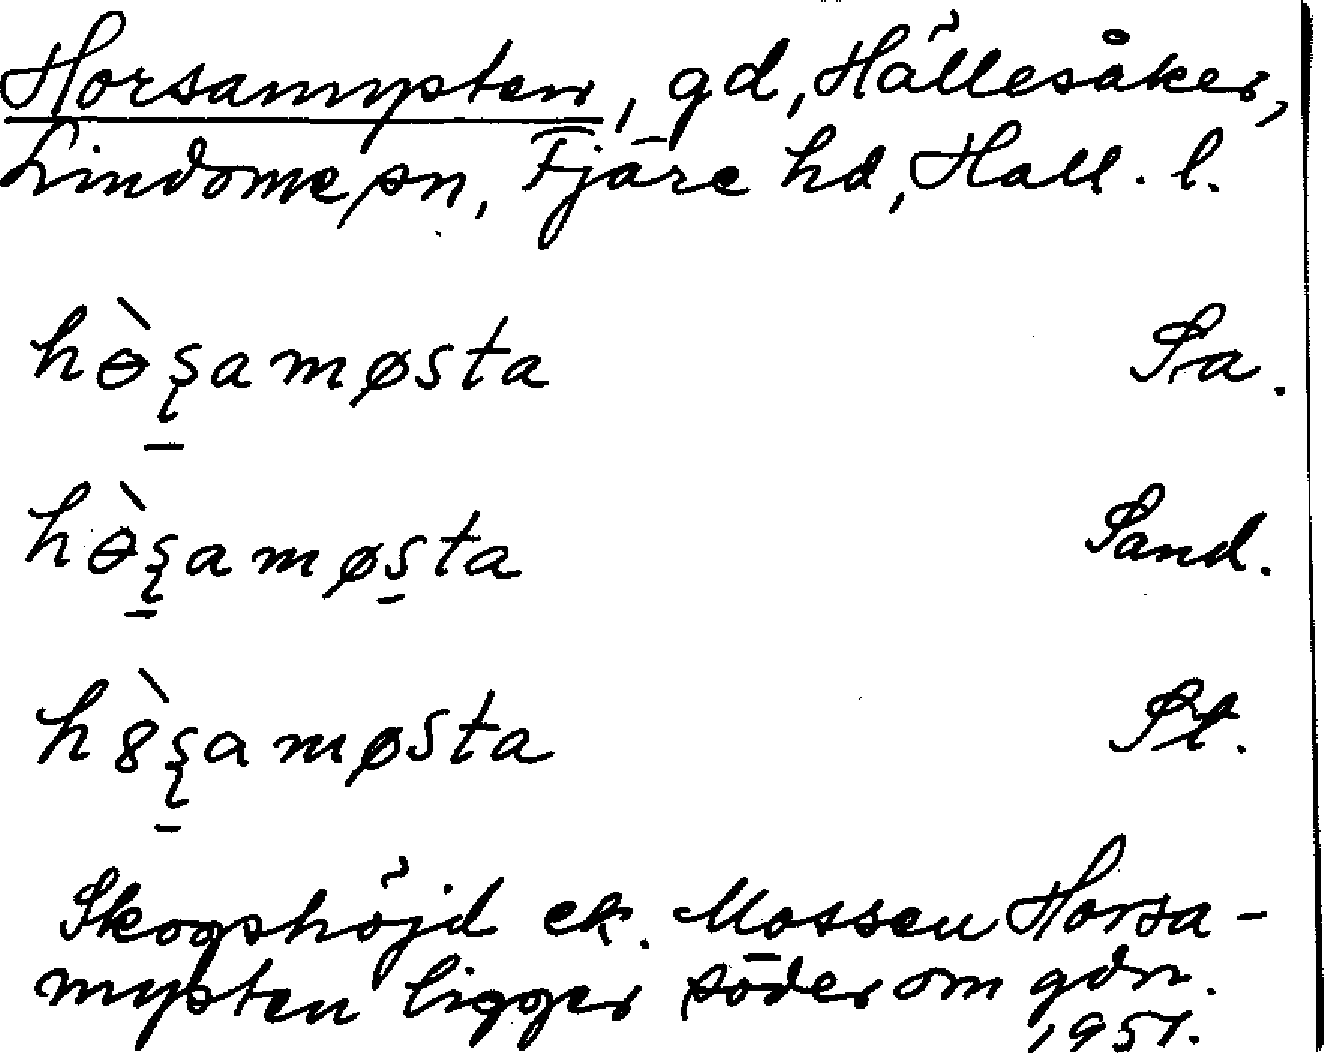 Horsamysten, gd, Hällesåker,
Lindome sn, Fjäre hd, Hall. l.
hɵ̀ʂamøsta Sa.
hɵ̀ʂamøs̠ta Sand.
h8̀ʂamøsta St.
Skogshöjd ek. Mossen Horsa-
mysten ligger söder om gdn.
1951.